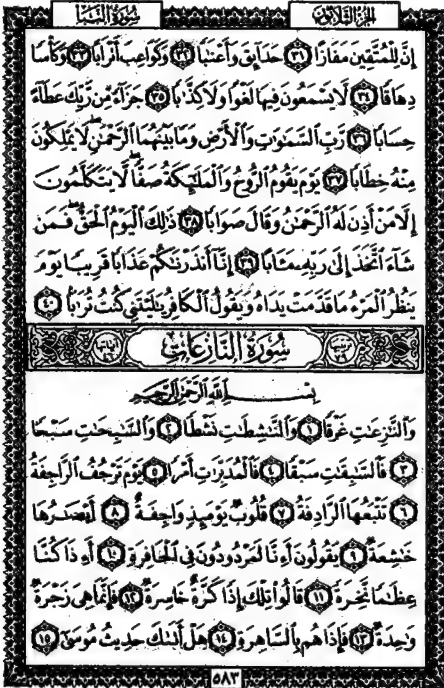 سُورَةُ النَّبَإِ
الجُزءُ الثَّلَاثُونَ
إِنَّ لِلْمُتَّقِينَ مَفَازًا ٣١ حَدَآئِقَ وَأَعْنَٰبًا ٣٢ وَكَوَاعِبَ أَتْرَابًا ٣٣ وَكَأْسًا
دِهَاقًا ٣٤ لَّا يَسْمَعُونَ فِيهَا لَغْوًا وَلَا كِذَّٰبًا ٣٥ جَزَآءً مِّن رَّبِّكَ عَطَآءً
حِسَابًا ٣٦ رَّبِّ السَّمَٰوَٰتِ وَالْأَرْضِ وَمَا بَيْنَهُمَا الرَّحْمَٰنِ لَا يَمْلِكُونَ
مِنْهُ خِطَابًا ٣٧ يَوْمَ يَقُومُ الرُّوحُ وَالْمَلَٰٓئِكَةُ صَفًّا لَّا يَتَكَلَّمُونَ
إِلَّا مَنْ أَذِنَ لَهُ الرَّحْمَٰنُ وَقَالَ صَوَابًا ٣٨ ذَٰلِكَ الْيَوْمُ الْحَقُّ فَمَن
شَآءَ اتَّخَذَ إِلَىٰ رَبِّهِ مَـَٔابًا ٣٩ إِنَّآ أَنذَرْنَٰكُمْ عَذَابًا قَرِيبًا يَوْمَ
يَنظُرُ الْمَرْءُ مَا قَدَّمَتْ يَدَاهُ وَيَقُولُ الْكَافِرُ يَٰلَيْتَنِي كُنتُ تُرَٰبًا ٤٠
سُورَةُ النَّازِعَاتِ
بِسْمِ اللَّهِ الرَّحْمَٰنِ الرَّحِيمِ
وَالنَّٰزِعَٰتِ غَرْقًا ١ وَالنَّٰشِطَٰتِ نَشْطًا ٢ وَالسَّٰبِحَٰتِ سَبْحًا
٣ فَالسَّٰبِقَٰتِ سَبْقًا ٤ فَالْمُدَبِّرَٰتِ أَمْرًا ٥ يَوْمَ تَرْجُفُ الرَّاجِفَةُ
٦ تَتْبَعُهَا الرَّادِفَةُ ٧ قُلُوبٌ يَوْمَئِذٍ وَاجِفَةٌ ٨ أَبْصَٰرُهَا
خَٰشِعَةٌ ٩ يَقُولُونَ أَءِنَّا لَمَرْدُودُونَ فِي الْحَافِرَةِ ١٠ أَءِذَا كُنَّا
عِظَٰمًا نَّخِرَةً ١١ قَالُوا تِلْكَ إِذًا كَرَّةٌ خَاسِرَةٌ ١٢ فَإِنَّمَا هِيَ زَجْرَةٌ
وَٰحِدَةٌ ١٣ فَإِذَا هُم بِالسَّاهِرَةِ ١٤ هَلْ أَتَىٰكَ حَدِيثُ مُوسَىٰٓ ١٥
٥٨٣